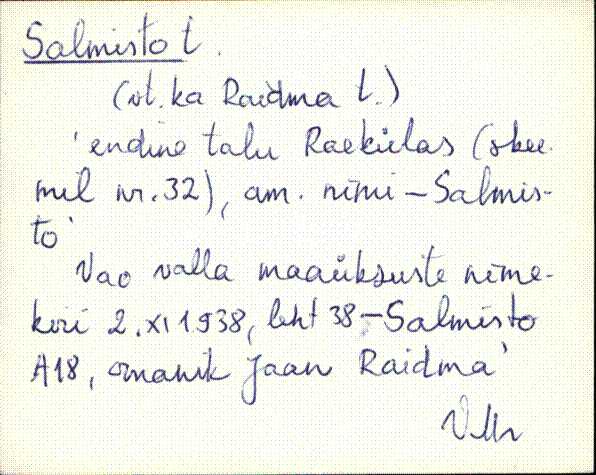 Salmisto t.
(vt. ka Raidma t.)
'endine talu Raekülas (skee-
mil nr. 32), am. nimi - Salmis-
to'
Vao valla maaüksuste nime-
kiri 2. XI 1938, leht 38 - Salmisto
A18, omanik Jaan Raidma'